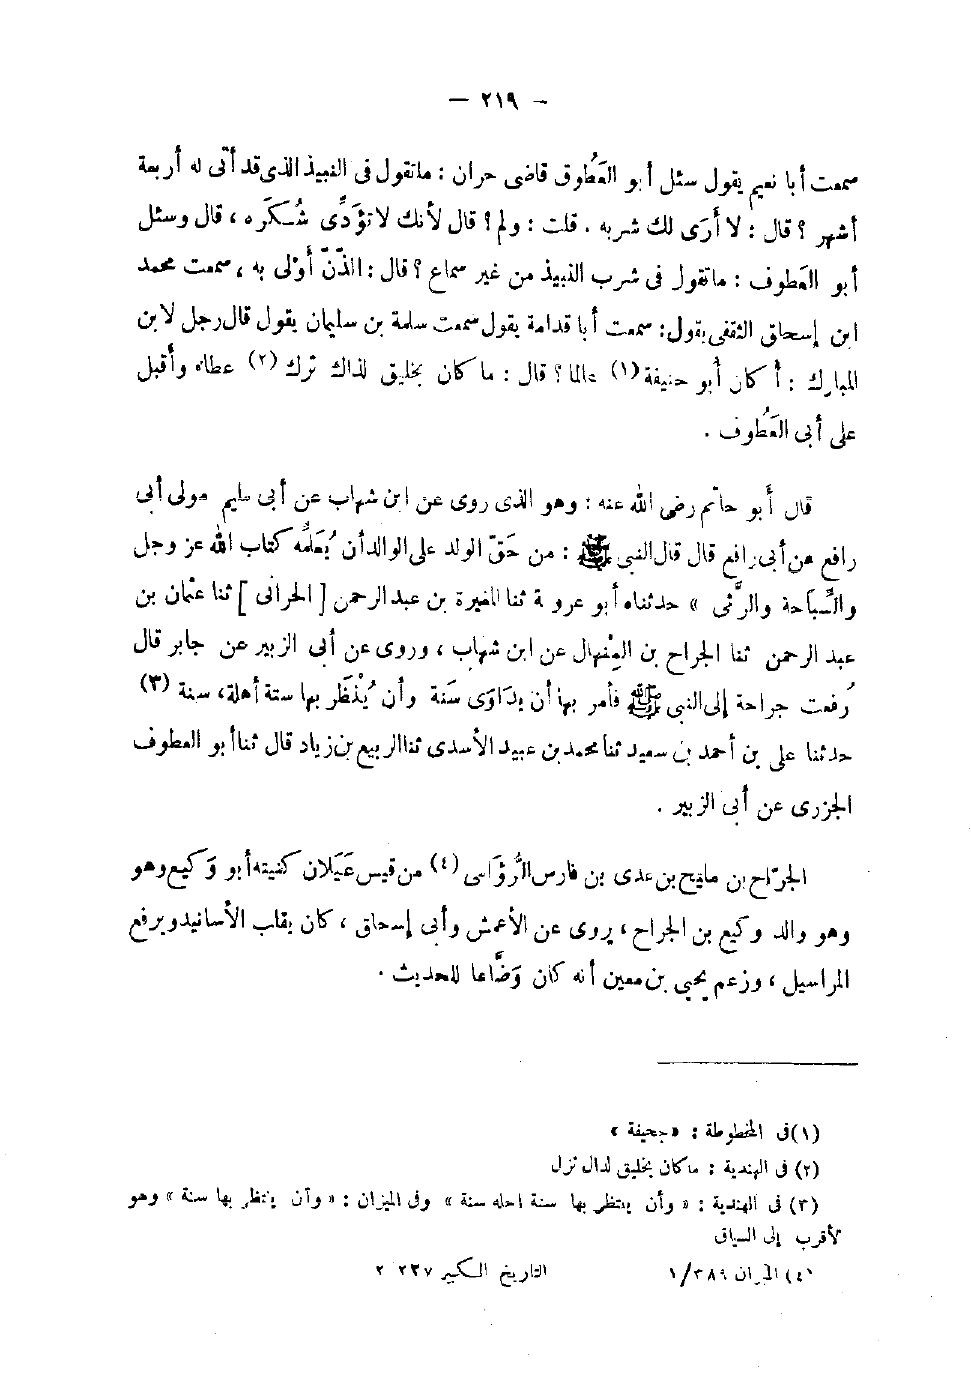 — ٢١٩ —
سمعت أبا نعيم يقول سئل أبو العَطُوق قاضى حران : ماتقول فى النبيذ الذى قد أتى له أربعة
أشهر ؟ قال : لا أرَى لك شربه . قلت : ولم ؟ قال لأنك لا تؤَدِّى شُكَره ، قال وسئل
أبو العَطوف : ماتقول فى شرب النبيذ من غير سماع ؟ قال : الدّنّ أَوْلى به ، سمعت محمد
ابن إسحاق الثقفى يقول : سمعت أبا قدامة يقول سمعت سلمة بن سليمان يقول قال رجل لابن
المبارك : أكان أبو حنيفة (١) عالما ؟ قال : ما كان بخليق لذاك ترك (٢) عطاء وأقبل
على أبى العَطُوف .
قال أبو حاتم رضى الله عنه : وهو الذى روى عن ابن شهاب عن أبى سليم مولى أبى
رافع عن أبى رافع قال قال النبى ﷺ : من حَقّ الولد على الوالد أن يُعَلِّمه كتاب الله عز وجل
والسِّبَاحة والرَّمْى » حدثناه أبو عروبة ثنا المغيرة بن عبد الرحمن [ الحرانى ] ثنا عثمان بن
عبد الرحمن ثنا الجراح بن المِنْهال عن ابن شهاب ، وروى عن أبى الزبير عن جابر قال
رُفعت جراحة إلى النبى ﷺ فأمر بها أن يدَاوَى سَنة وأن يُنْظَر بها ستة أهلة، سنة (٣)
حدثنا على بن أحمد بن سعيد ثنا محمد بن عبيد الأسدى ثنا الربيع بن زياد قال ثنا أبو العطوف
الجزرى عن أبى الزبير .
الجرّاح بن مليح بن عدى بن فارس الرُّؤَاسى (٤) من قيس عَيَلان كنيته أبو وَكيع وهو
وهو والد وكيع بن الجراح ، يروى عن الأعمش وأبى إسحاق ، كان يقلب الأسانيد ويرفع
المراسيل ، وزعم يحيى بن معين أنه كان وَضَّاعا للحديث .
(١) فى المخطوطة : «جحيفة »
(٢) فى الهندية : ماكان بخليق لدال نزل
(٣) فى الهندية : « وأن ينتظر بها سنة احله سنة » وفى الميزان : « وأن ينتظر بها سنة » وهو
لأقرب إلى السياق
(٤) الميزان ١/٣٨٩ التاريخ الكبير ٢٢٧ ٢